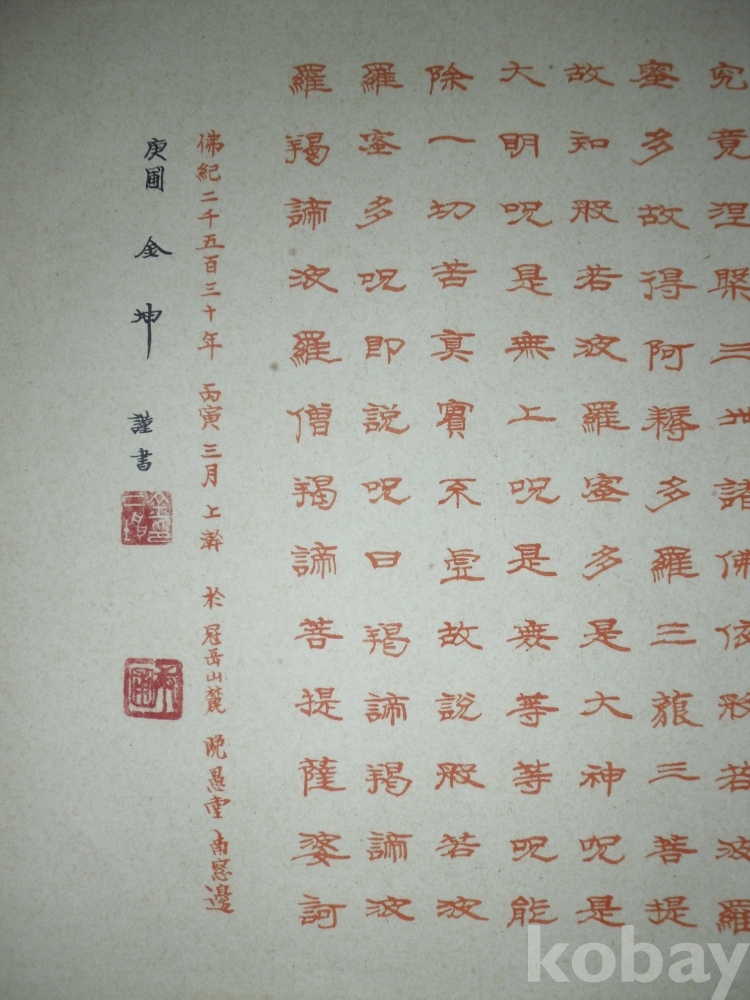 究竟涅槃三世諸佛依般若波羅
蜜多故得阿耨多羅三藐三菩提
故知般若波羅蜜多是大神呪是
大明呪是無上呪是無等等呪能
除一切苦真實不虛故說般若波
羅蜜多呪即說呪曰羯諦羯諦波
羅羯諦波羅僧羯諦菩提薩婆訶
佛紀二千五百三十年 丙寅三月上澣 於冠岳山麓 晩愚堂南窓邊
庚圃 金坤 謹書
kobay